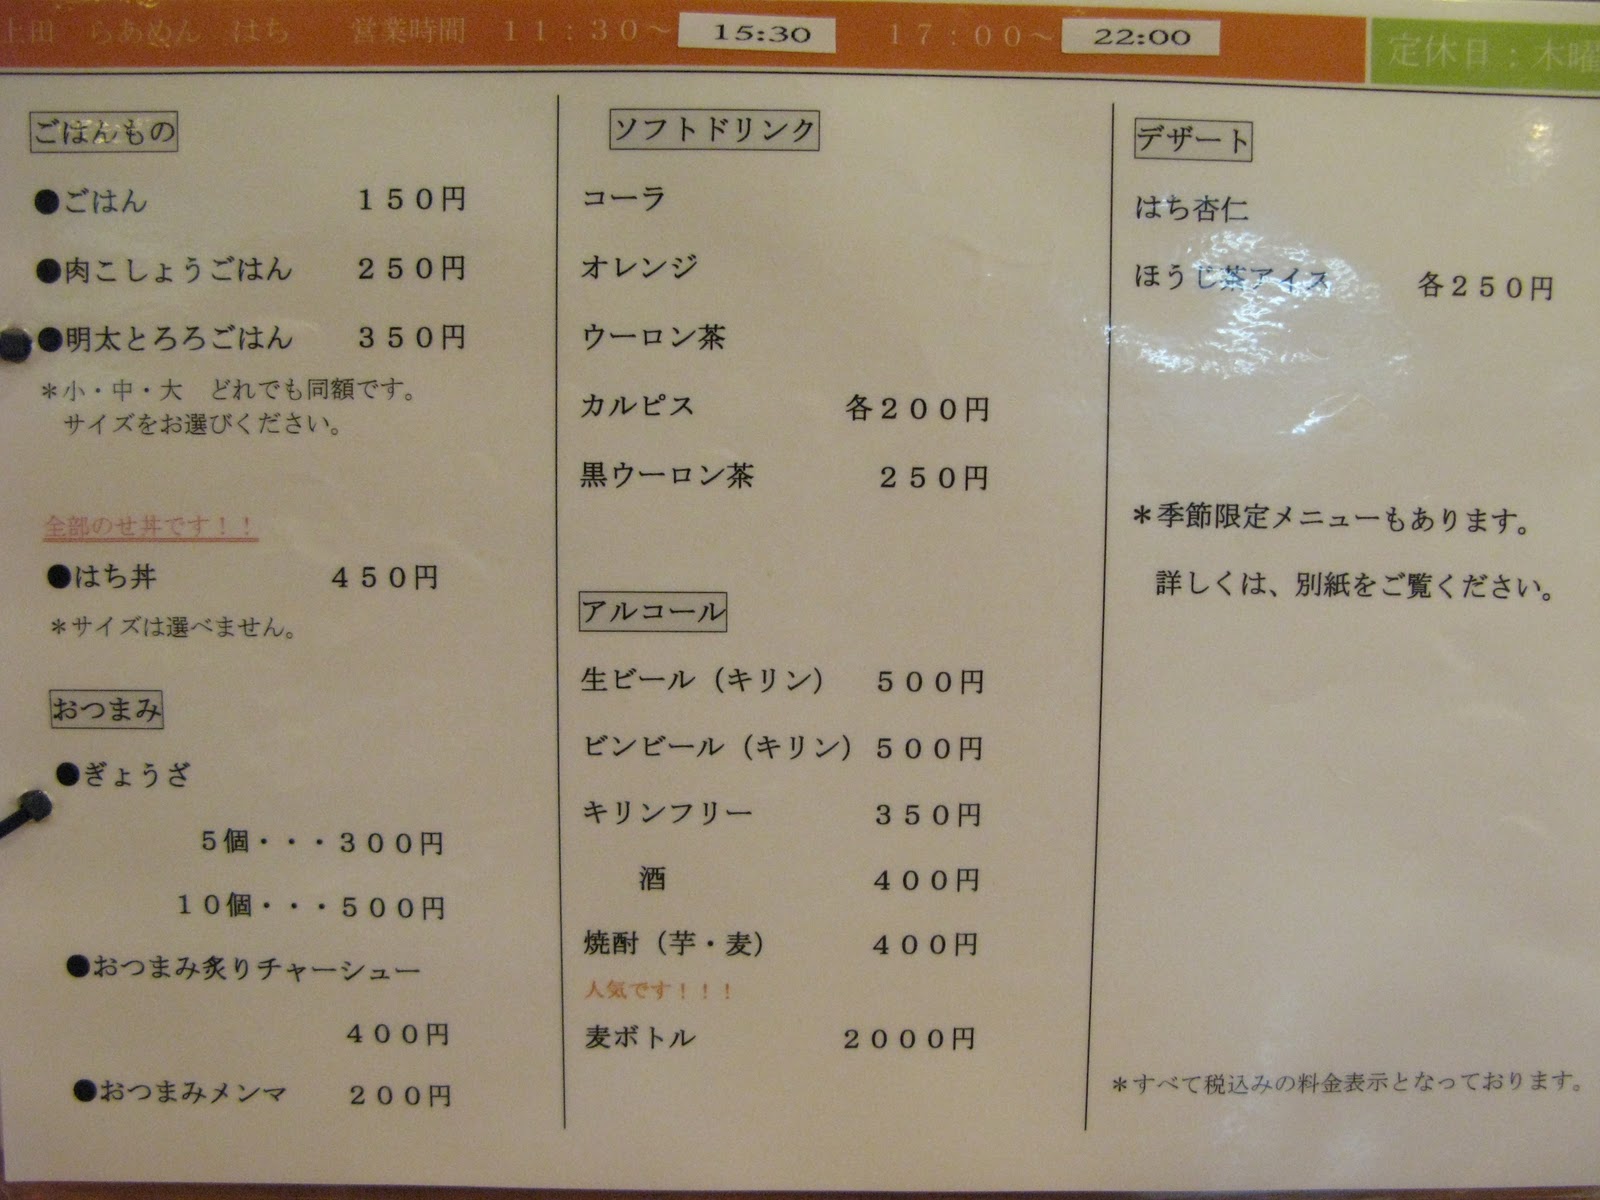 上田 らあめん はち 営業時間 １１：３０～ 15:30 １７：００～ 22:00
定休日：木曜
ごはんもの
●ごはん １５０円
●肉こしょうごはん ２５０円
●明太とろろごはん ３５０円
＊小・中・大 どれでも同額です。
サイズをお選びください。
全部のせ丼です！！
●はち丼 ４５０円
＊サイズは選べません。
おつまみ
●ぎょうざ
５個・・・３００円
１０個・・・５００円
●おつまみ炙りチャーシュー
４００円
●おつまみメンマ ２００円
ソフトドリンク
コーラ
オレンジ
ウーロン茶
カルピス 各２００円
黒ウーロン茶 ２５０円
アルコール
生ビール（キリン） ５００円
ビンビール（キリン） ５００円
キリンフリー ３５０円
酒 ４００円
焼酎（芋・麦） ４００円
人気です！！！
麦ボトル ２０００円
デザート
はち杏仁
ほうじ茶アイス 各２５０円
＊季節限定メニューもあります。
詳しくは、別紙をご覧ください。
＊すべて税込みの料金表示となっております。